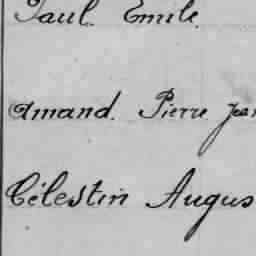 Paul. Emile.
Amand. Pierre Jean
Célestin Augus